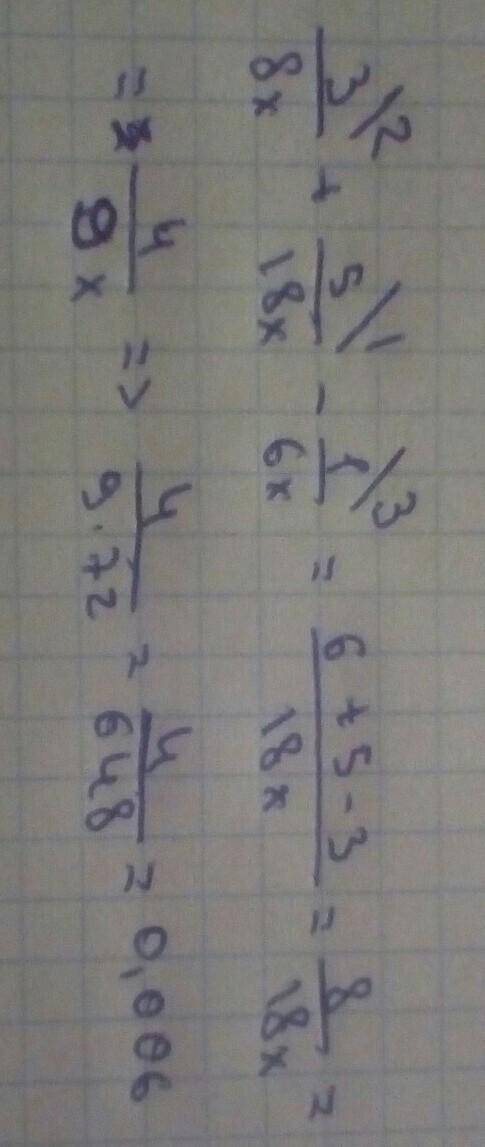 3/2 / 8x + 5/1 / 18x - 1/3 / 6x = 6+5-3 / 18x = 8 / 18x =
= 4 / 9x => 4 / 9·72 = 4 / 648 = 0,006